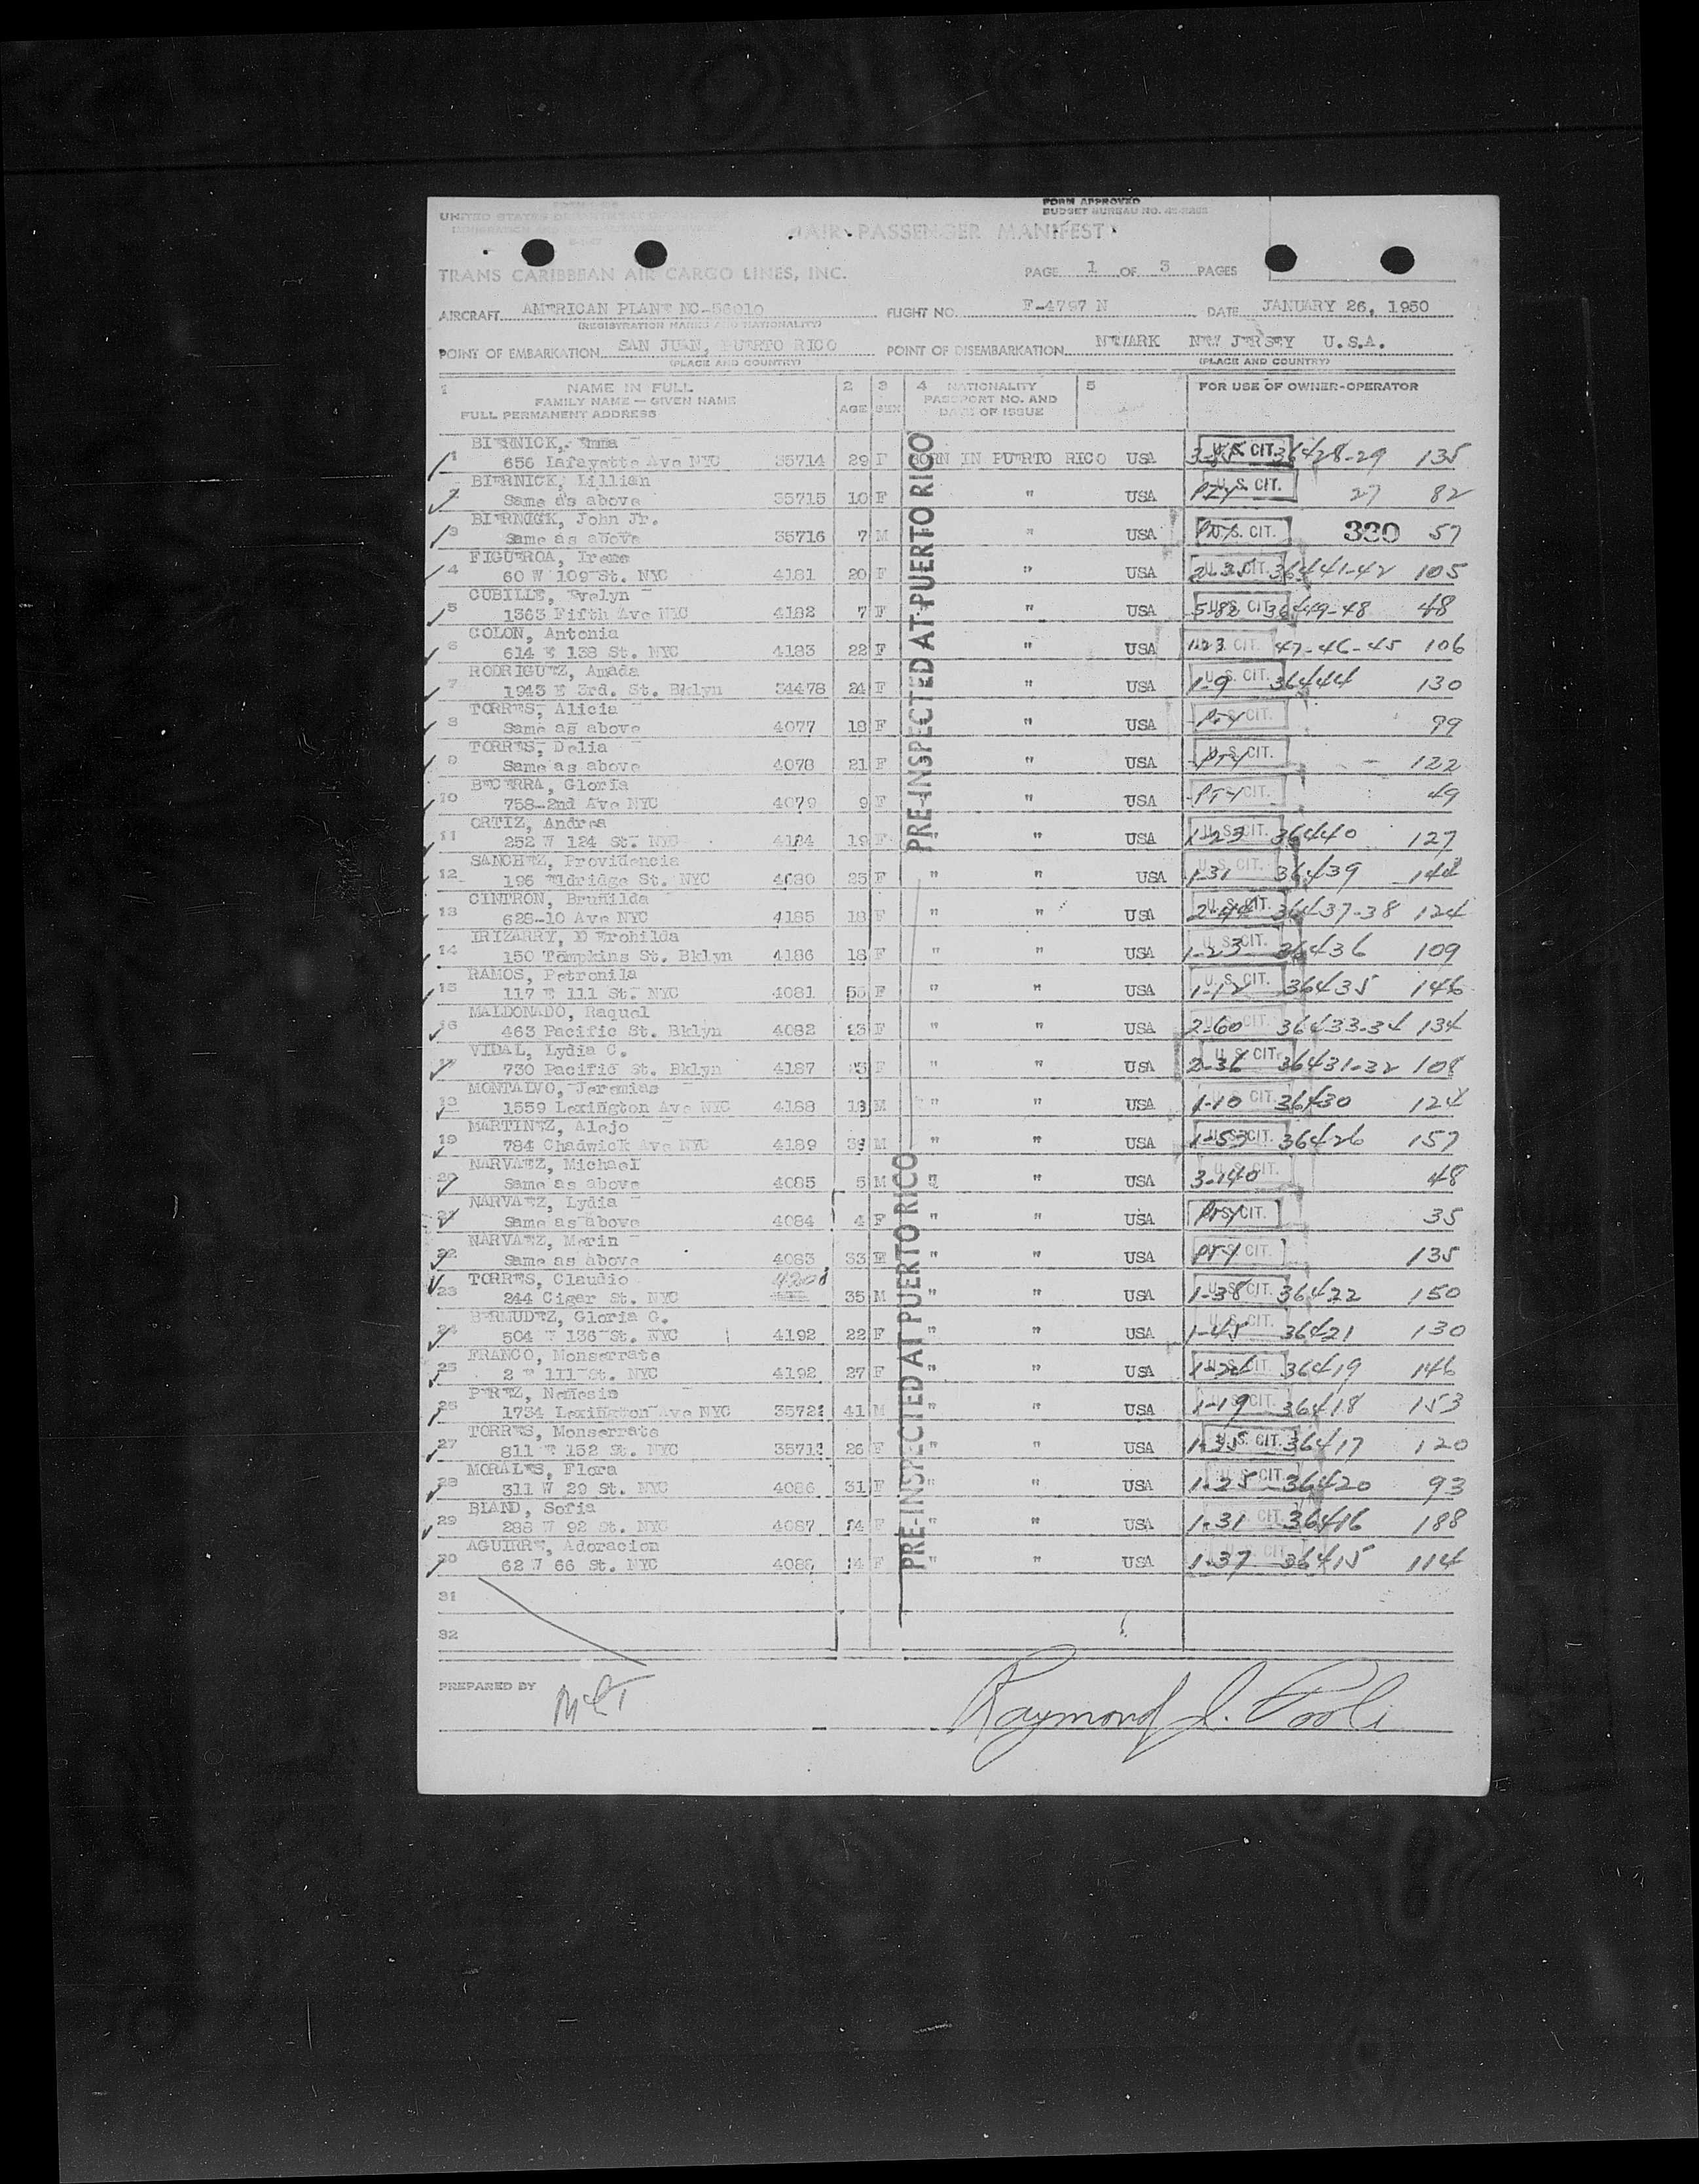 FORM APPROVED
BUDGET BUREAU NO.
UNITED STATES DEPARTMENT OF
AIR PASSENGER MANIFEST
TRANS CARIBBEAN AIR CARGO LINES, INC.
PAGE 1 OF 3 PAGES
AIRCRAFT AMERICAN PLANE NC-56010 FLIGHT NO. F-4797 N DATE JANUARY 26, 1950
(REGISTRATION MARKS AND NATIONALITY)
POINT OF EMBARKATION SAN JUAN, PUERTO RICO POINT OF DISEMBARKATION NEWARK NEW JERSEY U.S.A.
(PLACE AND COUNTRY) (PLACE AND COUNTRY)
1 NAME IN FULL 2 3 4 NATIONALITY 5 FOR USE OF OWNER-OPERATOR
FAMILY NAME — GIVEN NAME AGE SEX PASSPORT NO. AND
FULL PERMANENT ADDRESS DATE OF ISSUE
PRE-INSPECTED AT PUERTO RICO
BIERNICK, Emma
1 656 Lafayette Ave NYC 35714 29 F BORN IN PUERTO RICO USA U.S. CIT. 36428-29 135
BIERNICK, Lillian
2 Same as above 35715 10 F " USA PTY U.S. CIT. 27 82
BIERNICK, John Jr.
3 Same as above 35716 7 M " USA PTY U.S. CIT. 330 57
FIGUEROA, Irene
4 60 W 109 St. NYC 4181 20 F " USA U.S. CIT. 36441-42 105
CUBILLE, Evelyn
5 1363 Fifth Ave NYC 4182 7 F " USA U.S. CIT. 36449-48 48
COLON, Antonia
6 614 E 138 St. NYC 4183 22 F " USA CIT. 47-46-45 106
RODRIGUEZ, Amada
7 1943 E 3rd. St. Bklyn 34478 24 F " USA 1-9 U.S. CIT. 36444 130
TORRES, Alicia
8 Same as above 4077 18 F " USA PTY U.S. CIT. 99
TORRES, Delia
9 Same as above 4078 21 F " USA PTY U.S. CIT. 122
BECERRA, Gloria
10 758-2nd Ave NYC 4079 9 F " USA PTY CIT. 49
ORTIZ, Andrea
11 252 W 124 St. NYC 4184 19 F " " USA 1-23 U.S. CIT. 36440 127
SANCHEZ, Providencia
12 196 Eldridge St. NYC 4080 25 F " " USA 1-31 U.S. CIT. 36439 144
CINTRON, Brunilda
13 628-10 Ave NYC 4185 18 F " " USA 2-44 U.S. CIT. 36437-38 124
IRIZARRY, D Erohilda
14 150 Tompkins St. Bklyn 4186 18 F " " USA 1-23 U.S. CIT. 36436 109
RAMOS, Petronila
15 117 E 111 St. NYC 4081 55 F " " USA 1-12 U.S. CIT. 36435 146
MALDONADO, Raquel
16 463 Pacific St. Bklyn 4082 23 F " " USA 2-60 U.S. CIT. 36433-34 134
VIDAL, Lydia C.
17 730 Pacific St. Bklyn 4187 F " " USA 2-36 U.S. CIT. 36431-32 108
MONTALVO, Jeremias
18 1559 Lexington Ave NYC 4188 18 M " " USA 1-10 CIT. 36430 124
MARTINEZ, Alejo
19 784 Chadwick Ave NYC 4189 39 M " " USA 1-53 U.S. CIT. 36426 157
NARVAEZ, Michael
20 Same as above 4085 5 M " " USA 3-140 U.S. CIT. 48
NARVAEZ, Lydia
21 Same as above 4084 4 F " " USA PTY U.S. CIT. 35
NARVAEZ, Merin
22 Same as above 4083 33 " " USA PTY U.S. CIT. 135
TORRES, Claudio 4208
23 244 Ciger St. NYC 35 M " " USA 1-38 U.S. CIT. 36422 150
BERMUDEZ, Gloria G.
24 504 W 136 St. NYC 4192 22 F " " USA 1-45 U.S. CIT. 36421 130
FRANCO, Monserrate
25 2 E 111 St. NYC 4192 27 F " " USA U.S. CIT. 36419 146
PEREZ, Nemesio
26 1734 Lexington Ave NYC 41 M " " USA 1-19 U.S. CIT. 36418 153
TORRES, Monserrate
27 811 E 152 St. NYC 26 F " " USA 1-35 U.S. CIT. 36417 120
MORALES, Flora
28 311 W 29 St. NYC 4086 31 F " " USA 1-25 U.S. CIT. 36420 93
BLAND, Sofia
29 288 W 92 St. NYC 4087 F " " USA 1-31 CIT. 36416 188
AGUIRRE, Adoracion
30 62 W 66 St. NYC F " " USA 1-37 CIT. 36415 114
PRE-INSPECTED AT PUERTO RICO
31
32
PREPARED BY